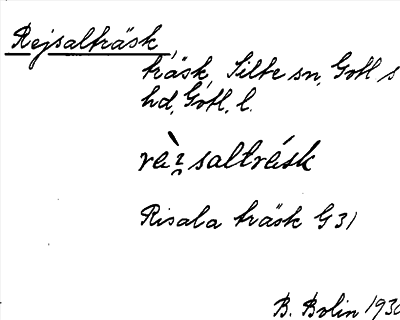 Rejsalträsk,
träsk, Silte sn, Gotl s
hd, Gotl. l.
saltrask
Risala träsk G 31
B. Bolin 193